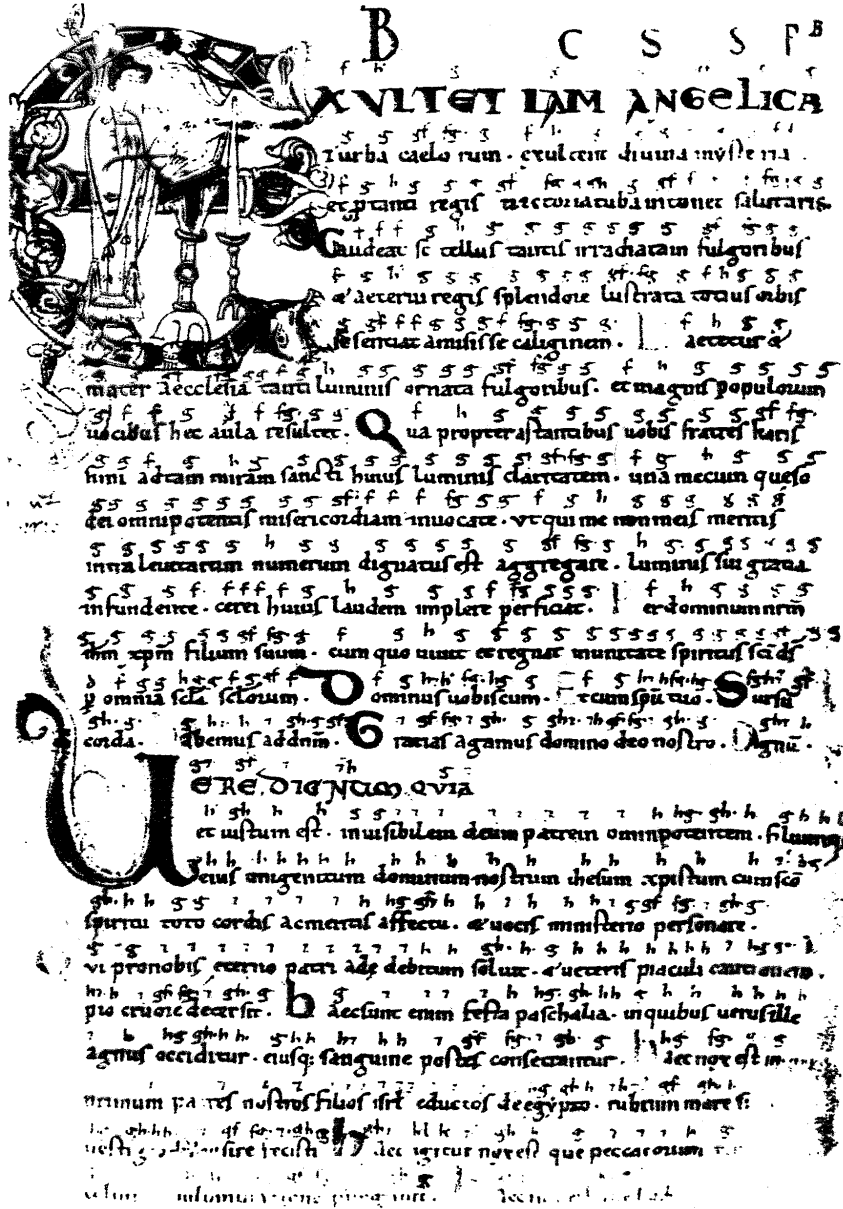 B C S S F B
EXVLTET IAM ANGELICA
Turba caelorum. exultent diuina mysteria.
et ptanti regis uictoria tuba intonet salutaris.
Gaudeat se tellus tantis irradiatam fulgoribus
& aeterni regis splendore lustrata totius orbis
se sentiat amisisse caliginem. Laetetur &
mater aecclesia tanti luminis ornata fulgoribus. et magnis populorum
uocibus hec aula resultet. Qua propter astantibus uobis fratres karis
simi ad tam miram sancti huius luminis claritatem. una mecum queso
dei omnipotentis misericordiam inuocate. vt qui me non meis meritis
intra leuitarum numerum dignatus est aggregare. luminis sui gratia
infundente. cerei huius laudem implere perficiat. P er dominum nrm
ihm xpm filium suum. cum quo uiuit et regnat in unitate spiritus sci ds
p omnia scla sclorum. Dominus uobiscum. Et cum spu tuo. Sursu
corda. habemus ad dnm. Gratias agamus domino deo nostro. Dignu.
UERE DIGNUM QVIA
et iustum est. inuisibilem deum patrem omnipotentem. filiumq
eius unigenitum dominum nostrum ihesum xpistum cum sco
spiritu toto cordis ac mentis affectu. & uocis ministerio personare.
Qui pro nobis eterno patri adę debitum soluit. & ueteris piaculi cautionem.
pio cruore detersit. haec sunt enim festa paschalia. in quibus uerus ille
agnus occiditur. eiusq; sanguine postes consecrantur. Haec nox est in
primum patres nostros filios isrl eductos de egypto. rubrum mare s
uestigio transire fecisti haec igitur nox est que peccatorum